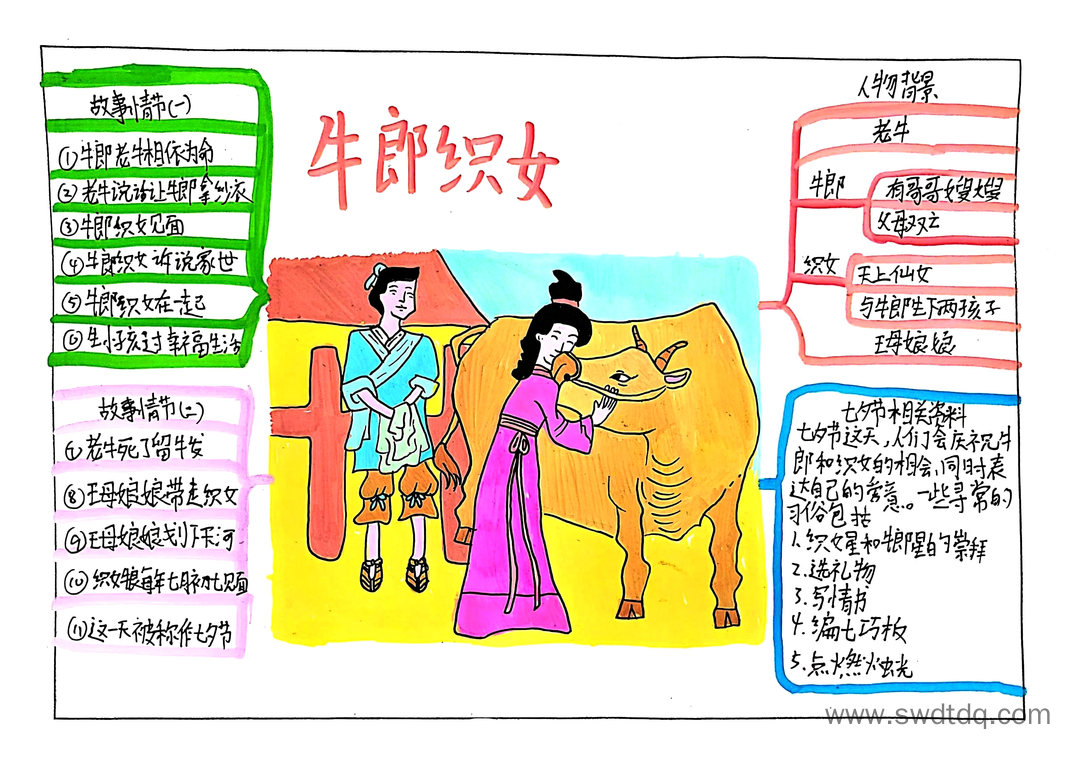 牛郎织女
故事情节(一)
①牛郎老牛相依为命
②老牛说话让牛郎拿纱衣
③牛郎织女见面
④牛郎织女诉说家世
⑤牛郎织女在一起
⑥生小孩过幸福生活
故事情节(二)
⑦老牛死了留牛皮
⑧王母娘娘带走织女
⑨王母娘娘划下天河
⑩织女牛郎每年七月初七见面
⑪这一天被称作七夕节
人物背景
老牛
牛郎
有哥哥嫂嫂
父母双亡
织女
天上仙女
与牛郎生下两孩子
王母娘娘
七夕节相关资料
七夕节这天,人们会庆祝牛
郎和织女的相会,同时表
达自己的爱意。一些寻常的
习俗包括
1.织女星和牛郎星的崇拜
2.选礼物
3.写情书
4.编七巧板
5.点燃烛光
www.swdtdq.com